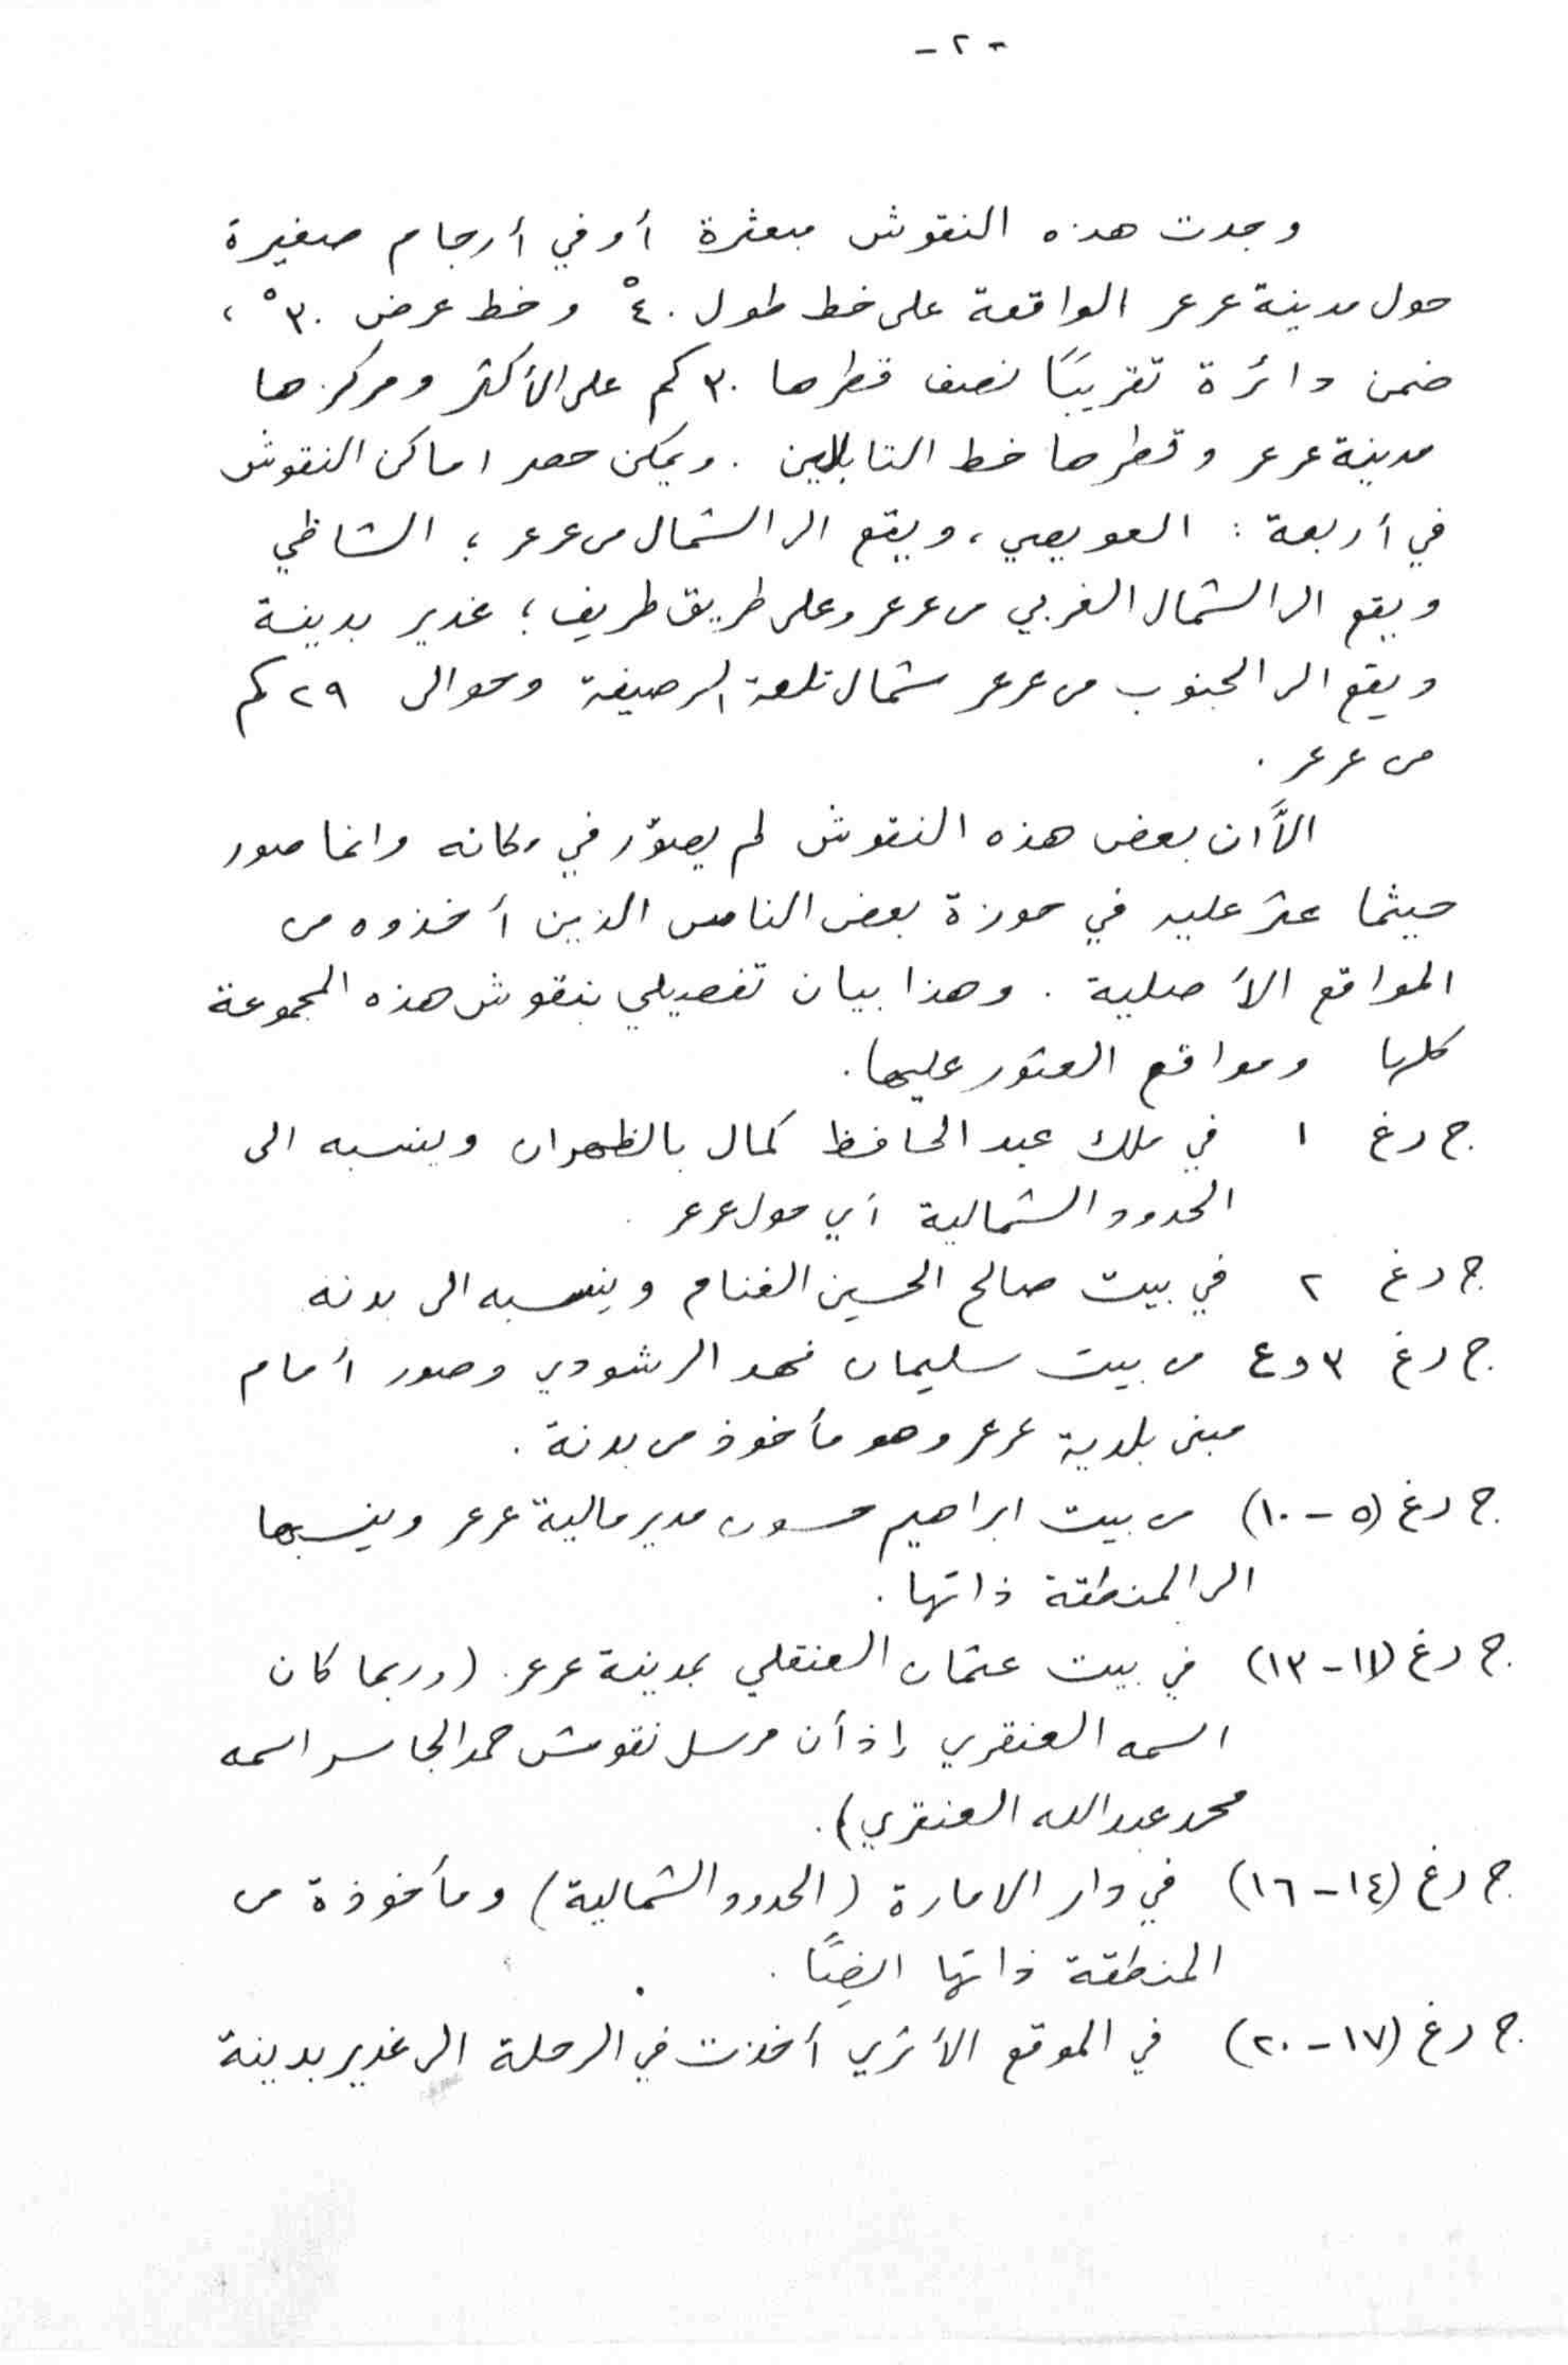 -٢-
وجدت هذه النقوش مبعثرة أو في أرجام صغيرة
حول مدينة عرعر الواقعة على خط طول ٤٠° وخط عرض ٣٠°،
ضمن دائرة تقريبًا نصف قطرها ٣٠ كم على الأكثر ومركزها
مدينة عرعر وقطرها خط التابلاين . ويمكن حصر اماكن النقوش
في أربعة : العويصي، ويقع الى الشمال من عرعر ؛ الشاظي
ويقع الى الشمال الغربي من عرعر وعلى طريق طريف ؛ غدير بدينة
ويقع الى الجنوب من عرعر شمال تلعة الرصيفة وحوالى ٢٩ كم
من عرعر .
الاَّ ان بعض هذه النقوش لم يصوّر في مكانه وانما صور
حيثما عثر عليه في حوزة بعض الناس الذين أخذوه من
المواقع الأصلية . وهذا بيان تفصيلي بنقوش هذه المجموعة
كلها ومواقع العثور عليها .
ج ر غ ١ في ملك عبد الحافظ كمال بالظهران وينسبه الى
الحدود الشمالية أي حول عرعر .
ج ر غ ٢ في بيت صالح الحسين الغنام وينسبه الى بدنه
ج ر غ ٣ و ٤ من بيت سليمان فهد الرشودي وصور أمام
مبنى بلدية عرعر وهو مأخوذ من بدنة .
ج ر غ (٥ - ١٠) من بيت ابراهيم حسون مدير مالية عرعر وينسبها
الى المنطقة ذاتها .
ج ر غ (١١ - ١٣) في بيت عثمان العنقلي بمدينة عرعر . (وربما كان
اسمه العنقري إذ أن مرسل نقوش حمد الجاسر اسمه
محمد عبد الله العنقري) .
ج ر غ (١٤ - ١٦) في دار الامارة (الحدود الشمالية) ومأخوذة من
المنطقة ذاتها ايضًا .
ج ر غ (١٧ - ٢٠) في الموقع الأثري أخذت في الرحلة الى غدير بدينة